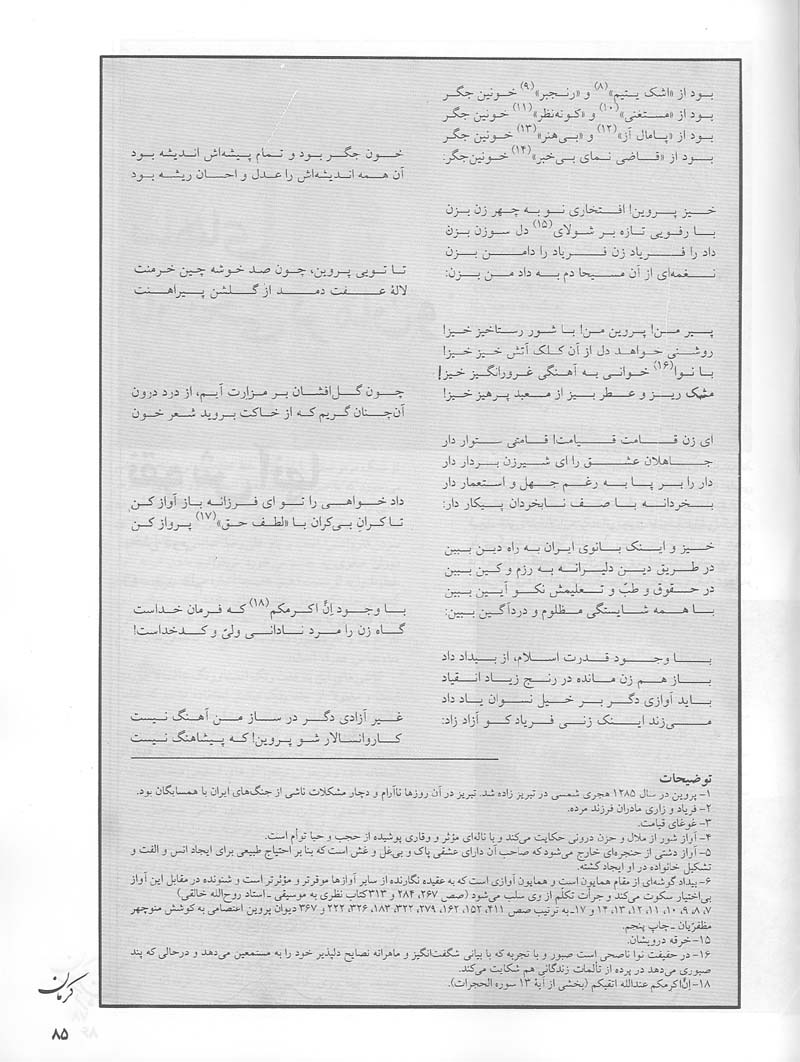 بود از «اشک یتیم»(۸) و «رنجبر»(۹) خونین جگر
بود از «مستغنی»(۱۰) و «کوته‌نظر»(۱۱) خونین جگر
بود از «پامال آز»(۱۲) و «بی‌هنر»(۱۳) خونین جگر
بود از «قاضی نمای بی‌خبر»(۱۴) خونین‌جگر:
خون جگر بود و تمام پیشه‌اش اندیشه بود
آن همه اندیشه‌اش را عدل و احسان ریشه بود
خیز پروین! افتخاری نو به چهر زن بزن
با رفویی تازه بر شولای(۱۵) دل سوزن بزن
داد را فریاد زن فریاد را دامن بزن
نغمه‌ای از آن مسیحا دم به داد من بزن:
تا تویی پروین، چون صد خوشه چین خرمنت
لالهٔ عفت دمد از گلشن پیراهنت
پیر من! پروین من! با شور رستاخیز خیز!
روشنی خواهد دل از آن کلک آتش خیز خیز!
با نوا(۱۶) خوانی به آهنگی غرورانگیز خیز!
مشک ریز و عطر بیز از معبد پرهیز خیز!
چون گل‌افشان بر مزارت آیم، از درد درون
آن‌چنان گریم که از خاکت بروید شعر خون
ای زن قامت قیامت! قامتی ستوار دار
جاهلان عشق را ای شیرزن بردار دار
دار را بر پا به رغم جهل و استعمار دار
بخردانه با صف نابخردان پیکار دار:
داد خواهی را تو ای فرزانه باز آواز کن
تا کران بی‌کران با «لطف حق»(۱۷) پرواز کن
خیز و اینک بانوی ایران به راه دین ببین
در طریق دین دلیرانه به رزم و کین ببین
در حقوق و طبّ و تعلیمش نکو آیین ببین
با همه شایستگی مظلوم و دردآگین ببین:
با وجود اِنَّ اکرمکم(۱۸) که فرمان خداست
گاه زن را مرد نادانی ولیّ و کدخداست!
با وجود قدرت اسلام، از بیداد داد
باز هم زن مانده در رنج زیاد انقیاد
باید آوازی دگر بر خیل نسوان یاد داد
می‌زند اینک زنی فریاد کو آزاد زاد:
غیر آزادی دگر در ساز من آهنگ نیست
کاروانسالار شو پروین! که پیشاهنگ نیست
توضیحات
۱- پروین در سال ۱۲۸۵ هجری شمسی در تبریز زاده شد. تبریز در آن روزها ناآرام و دچار مشکلات ناشی از جنگ‌های ایران با همسایگان بود.
۲- فریاد و زاری مادران فرزند مرده.
۳- غوغای قیامت.
۴- آواز شور از ملال و حزن درونی حکایت می‌کند و با ناله‌ای مؤثر و وقاری پوشیده از حجب و حیا توأم است.
۵- آواز دشتی از حنجره‌ای خارج می‌شود که صاحب آن دارای عشقی پاک و بی‌غل و غش است که بنا بر احتیاج طبیعی برای ایجاد انس و الفت و
تشکیل خانواده در او ایجاد گشته.
۶- بیداد گوشه‌ای از مقام همایون است و همایون آوازی است که به عقیده نگارنده از سایر آوازها موقرتر و مؤثرتر است و شنونده در مقابل این آواز
بی‌اختیار سکوت می‌کند و جرأت تکلّم از وی سلب می‌شود (صص ۲۶۷، ۲۸۴ و ۳۱۳ کتاب نظری به موسیقی ـ استاد روح‌الله خالقی)
۷، ۸، ۹، ۱۰، ۱۱، ۱۲، ۱۳، ۱۴ و ۱۷ـ به ترتیب صص ۴۱۱، ۱۵۲، ۱۶۲، ۲۷۹، ۳۲۲، ۱۸۳، ۳۲۶، ۲۲۲ و ۳۶۷ دیوان پروین اعتصامی به کوشش منوچهر
مظفریّان ـ چاپ پنجم.
۱۵- خرقه درویشان.
۱۶- در حقیقت نوا ناصحی است صبور و با تجربه که با بیانی شگفت‌انگیز و ماهرانه نصایح دلپذیر خود را به مستمعین می‌دهد و درحالی که پند
صبوری می‌دهد در پرده از تألمات زندگانی هم شکایت می‌کند.
۱۸- اِنَّ اکرمکم عندالله اتقیکم (بخشی از آیهٔ ۱۳ سوره الحجرات).
کرمان
۸۵